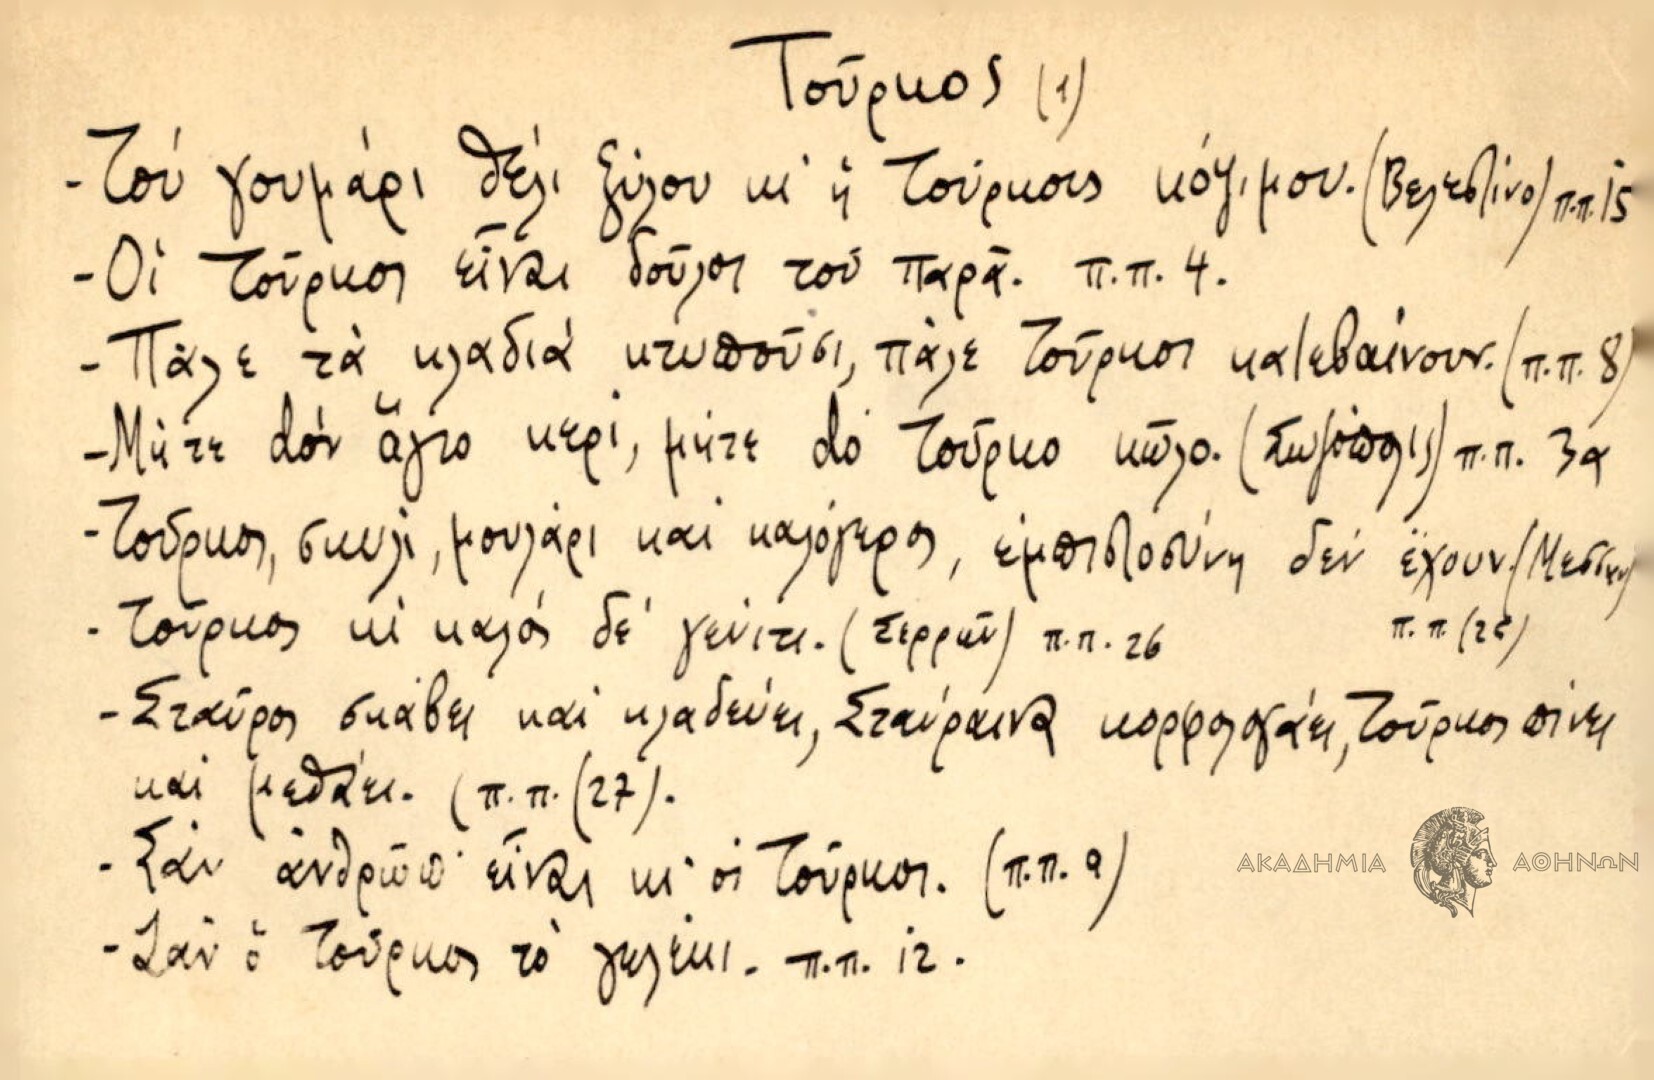 Τοῦρκος (1)
- Τού γουμάρι θέλι ξύλου κι' ἡ Τούρκους κόψιμου. (Βελεστῖνο) π.π. 15
- Οἱ Τοῦρκοι εἶναι δοῦλοι τοῦ παρᾶ. π.π. 4.
- Πάλε τὰ κλαδιά κτυποῦσι, πάλε Τοῦρκοι κατεβαίνουν. (π.π. 8)
- Μήτε dόν ἅγιο κερί, μήτε dό Τοῦρκο κῶλο. (Σωζόπολις) π.π. 3α
- Τοῦρκος, σκυλί, μουλάρι καί καλόγερος, ἐμπιστοσύνη δέν ἔχουν. (Μεσσην)
π.π.
- Τοῦρκος κί καλός δέ γένιτι. (Σερρῶν) π.π. 26
- Σταῦρος σκάβει καί κλαδεύει, Σταύραινα κορφολογάει, Τοῦρκος πίνει
καί μεθάει. (π.π. (27).
- Σάν ἀνθρῶπ' εἶναι κι' οἱ Τοῦρκοι. (π.π. 9)
- Σάν ὁ Τοῦρκος τὸ γελέκι. π.π. 12.
ΑΚΑΔΗΜΙΑ ΑΘΗΝΩΝ